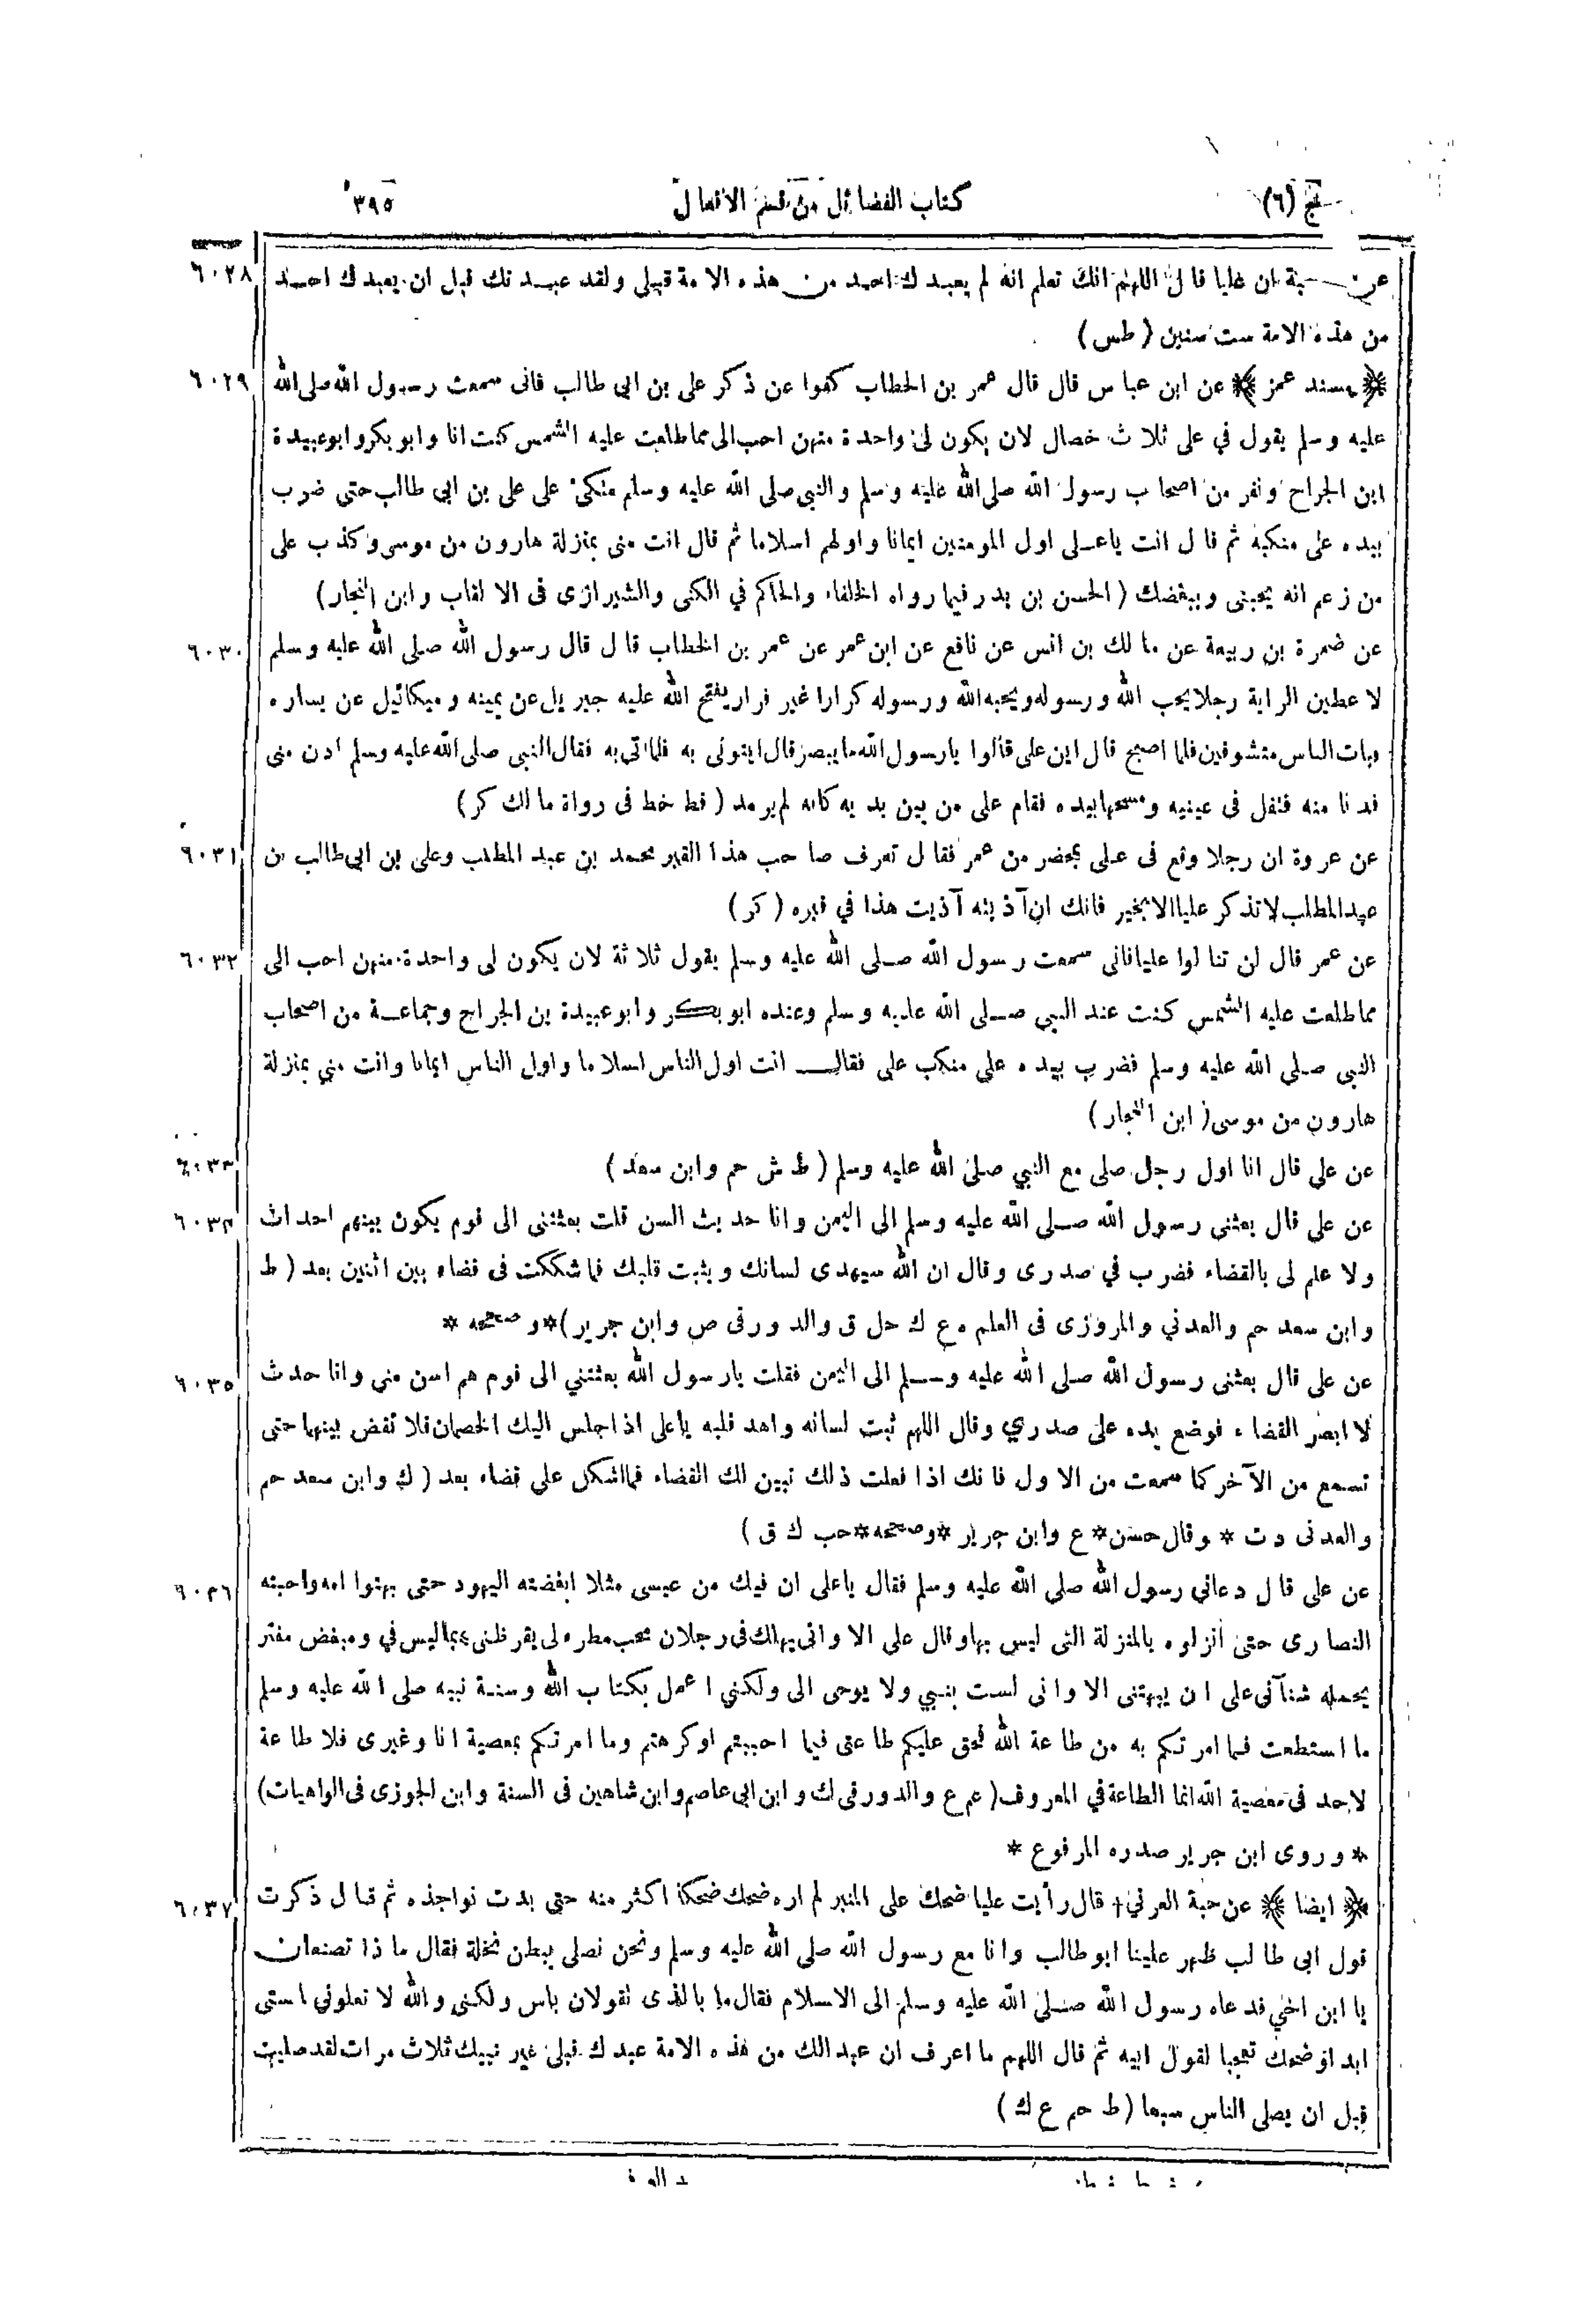 ج (٦) كتاب الفضائل من قسم الافعال ٣٩٥
عن حبة ان عليا قال اللهم انك تعلم انه لم يعبدك احد من هذه الامة قبلى ولقد عبدتك قبل ان يعبدك احد ٦٠٢٨
من هذه الامة ست سنين (طس)
﴿ مسند عمر ﴾ عن ابن عباس قال قال عمر بن الخطاب كفوا عن ذكر على بن ابى طالب فانى سمعت رسول الله صلى الله ٦٠٢٩
عليه وسلم يقول في على ثلاث خصال لان يكون لى واحدة منهن احب الى مما طلعت عليه الشمس كنت انا وابو بكر وابو عبيدة
ابن الجراح ونفر من اصحاب رسول الله صلى الله عليه وسلم والنبى صلى الله عليه وسلم متكئ على على بن ابى طالب حتى ضرب
بيده على منكبه ثم قال انت ياعلى اول المومنين ايمانا واولهم اسلاما ثم قال انت منى بمنزلة هارون من موسى وكذب على
من زعم انه يحبنى ويبغضك (الحسن بن بدر فيما رواه الخلفاء والحاكم في الكنى والشيرازى فى الالقاب وابن النجار)
عن ضمرة بن ربيعة عن مالك بن انس عن نافع عن ابن عمر عن عمر بن الخطاب قال قال رسول الله صلى الله عليه وسلم ٦٠٣٠
لاعطين الراية رجلا يحب الله ورسوله ويحبه الله ورسوله كرارا غير فرار يفتح الله عليه جبريل عن يمينه وميكائيل عن يساره
وبات الناس متشوفين فلما اصبح قال اين على قالوا يارسول الله ما يبصر قال ايتونى به فلما اتى به فقال النبى صلى الله عليه وسلم ادن منى
فدنا منه فتفل فى عينيه ومسحهما بيده فقام على من بين يديه كانه لم يرمد (قط خط فى رواة مالك كر)
عن عروة ان رجلا وقع فى على بمحضر من عمر فقال تعرف صاحب هذا القبر محمد بن عبد المطلب وعلى بن ابى طالب بن ٦٠٣١
عبد المطلب لا تذكر عليا الا بخير فانك ان آذيته آذيت هذا في قبره (كر)
عن عمر قال لن تنالوا عليا فانى سمعت رسول الله صلى الله عليه وسلم يقول ثلاثة لان يكون لى واحدة منهن احب الى ٦٠٣٢
مما طلعت عليه الشمس كنت عند النبي صلى الله عليه وسلم وعنده ابو بكر وابو عبيدة بن الجراح وجماعة من اصحاب
النبى صلى الله عليه وسلم فضرب بيده على منكب على فقال انت اول الناس اسلاما واول الناس ايمانا وانت منى بمنزلة
هارون من موسى (ابن النجار)
عن على قال انا اول رجل صلى مع النبي صلى الله عليه وسلم (ط ش حم وابن سعد) ٦٠٣٣
عن على قال بعثنى رسول الله صلى الله عليه وسلم الى اليمن وانا حديث السن قلت بعثتنى الى قوم يكون بينهم احداث ٦٠٣٤
ولا علم لى بالقضاء فضرب في صدرى وقال ان الله سيهدى لسانك ويثبت قلبك فما شككت فى قضاء بين اثنين بعد (ط
وابن سعد حم والعدني والمروزى فى العلم ه ع ك حل ق والدورقى ص وابن جرير) * وصححه *
عن على قال بعثنى رسول الله صلى الله عليه وسلم الى اليمن فقلت يارسول الله بعثتني الى قوم هم اسن منى وانا حدث ٦٠٣٥
لا ابصر القضاء فوضع يده على صدري وقال اللهم ثبت لسانه واهد قلبه ياعلى اذا جلس اليك الخصمان فلا تقض بينهما حتى
تسمع من الآخر كما سمعت من الاول فانك اذا فعلت ذلك تبين لك القضاء فما اشكل على قضاء بعد (ك وابن سعد حم
والعدنى د ت * وقال حسن * ع وابن جرير * وصححه * حب ك ق)
عن على قال دعاني رسول الله صلى الله عليه وسلم فقال ياعلى ان فيك من عيسى مثلا ابغضته اليهود حتى بهتوا امه واحبته ٦٠٣٦
النصارى حتى انزلوه بالمنزلة التى ليس بها وقال على الا وانى يهلك فى رجلان محب مطره لى يقرظنى بما ليس في ومبغض مفتر
يحمله شنآنى على ان يبهتنى الا وانى لست بنبي ولا يوحى الى ولكني اعمل بكتاب الله وسنة نبيه صلى الله عليه وسلم
ما استطعت فما امرتكم به من طاعة الله فحق عليكم طاعتى فيما احببتم او كرهتم وما امرتكم بمعصية انا وغيرى فلا طاعة
لاحد فى معصية الله انما الطاعة في المعروف (عم ع والدورقى ك وابن ابى عاصم وابن شاهين فى السنة وابن الجوزى فى الواهيات)
* وروى ابن جرير صدره المرفوع *
﴿ ايضا ﴾ عن حبة العرني † قال رأيت عليا ضحك على المنبر لم اره ضحك ضحكا اكثر منه حتى بدت نواجذه ثم قال ذكرت ٦٠٣٧
قول ابى طالب ظهر علينا ابو طالب وانا مع رسول الله صلى الله عليه وسلم ونحن نصلى ببطن نخلة فقال ماذا تصنعان
يا ابن اخي فدعاه رسول الله صلى الله عليه وسلم الى الاسلام فقال ما بالذى تقولان باس ولكنى والله لا تعلوني استى
ابدا وضحك تعجبا لقول ابيه ثم قال اللهم ما اعرف ان عبدا لك من هذه الامة عبدك قبلى غير نبيك ثلاث مرات لقد صليت
قبل ان يصلى الناس سبعا (ط حم ع ك)